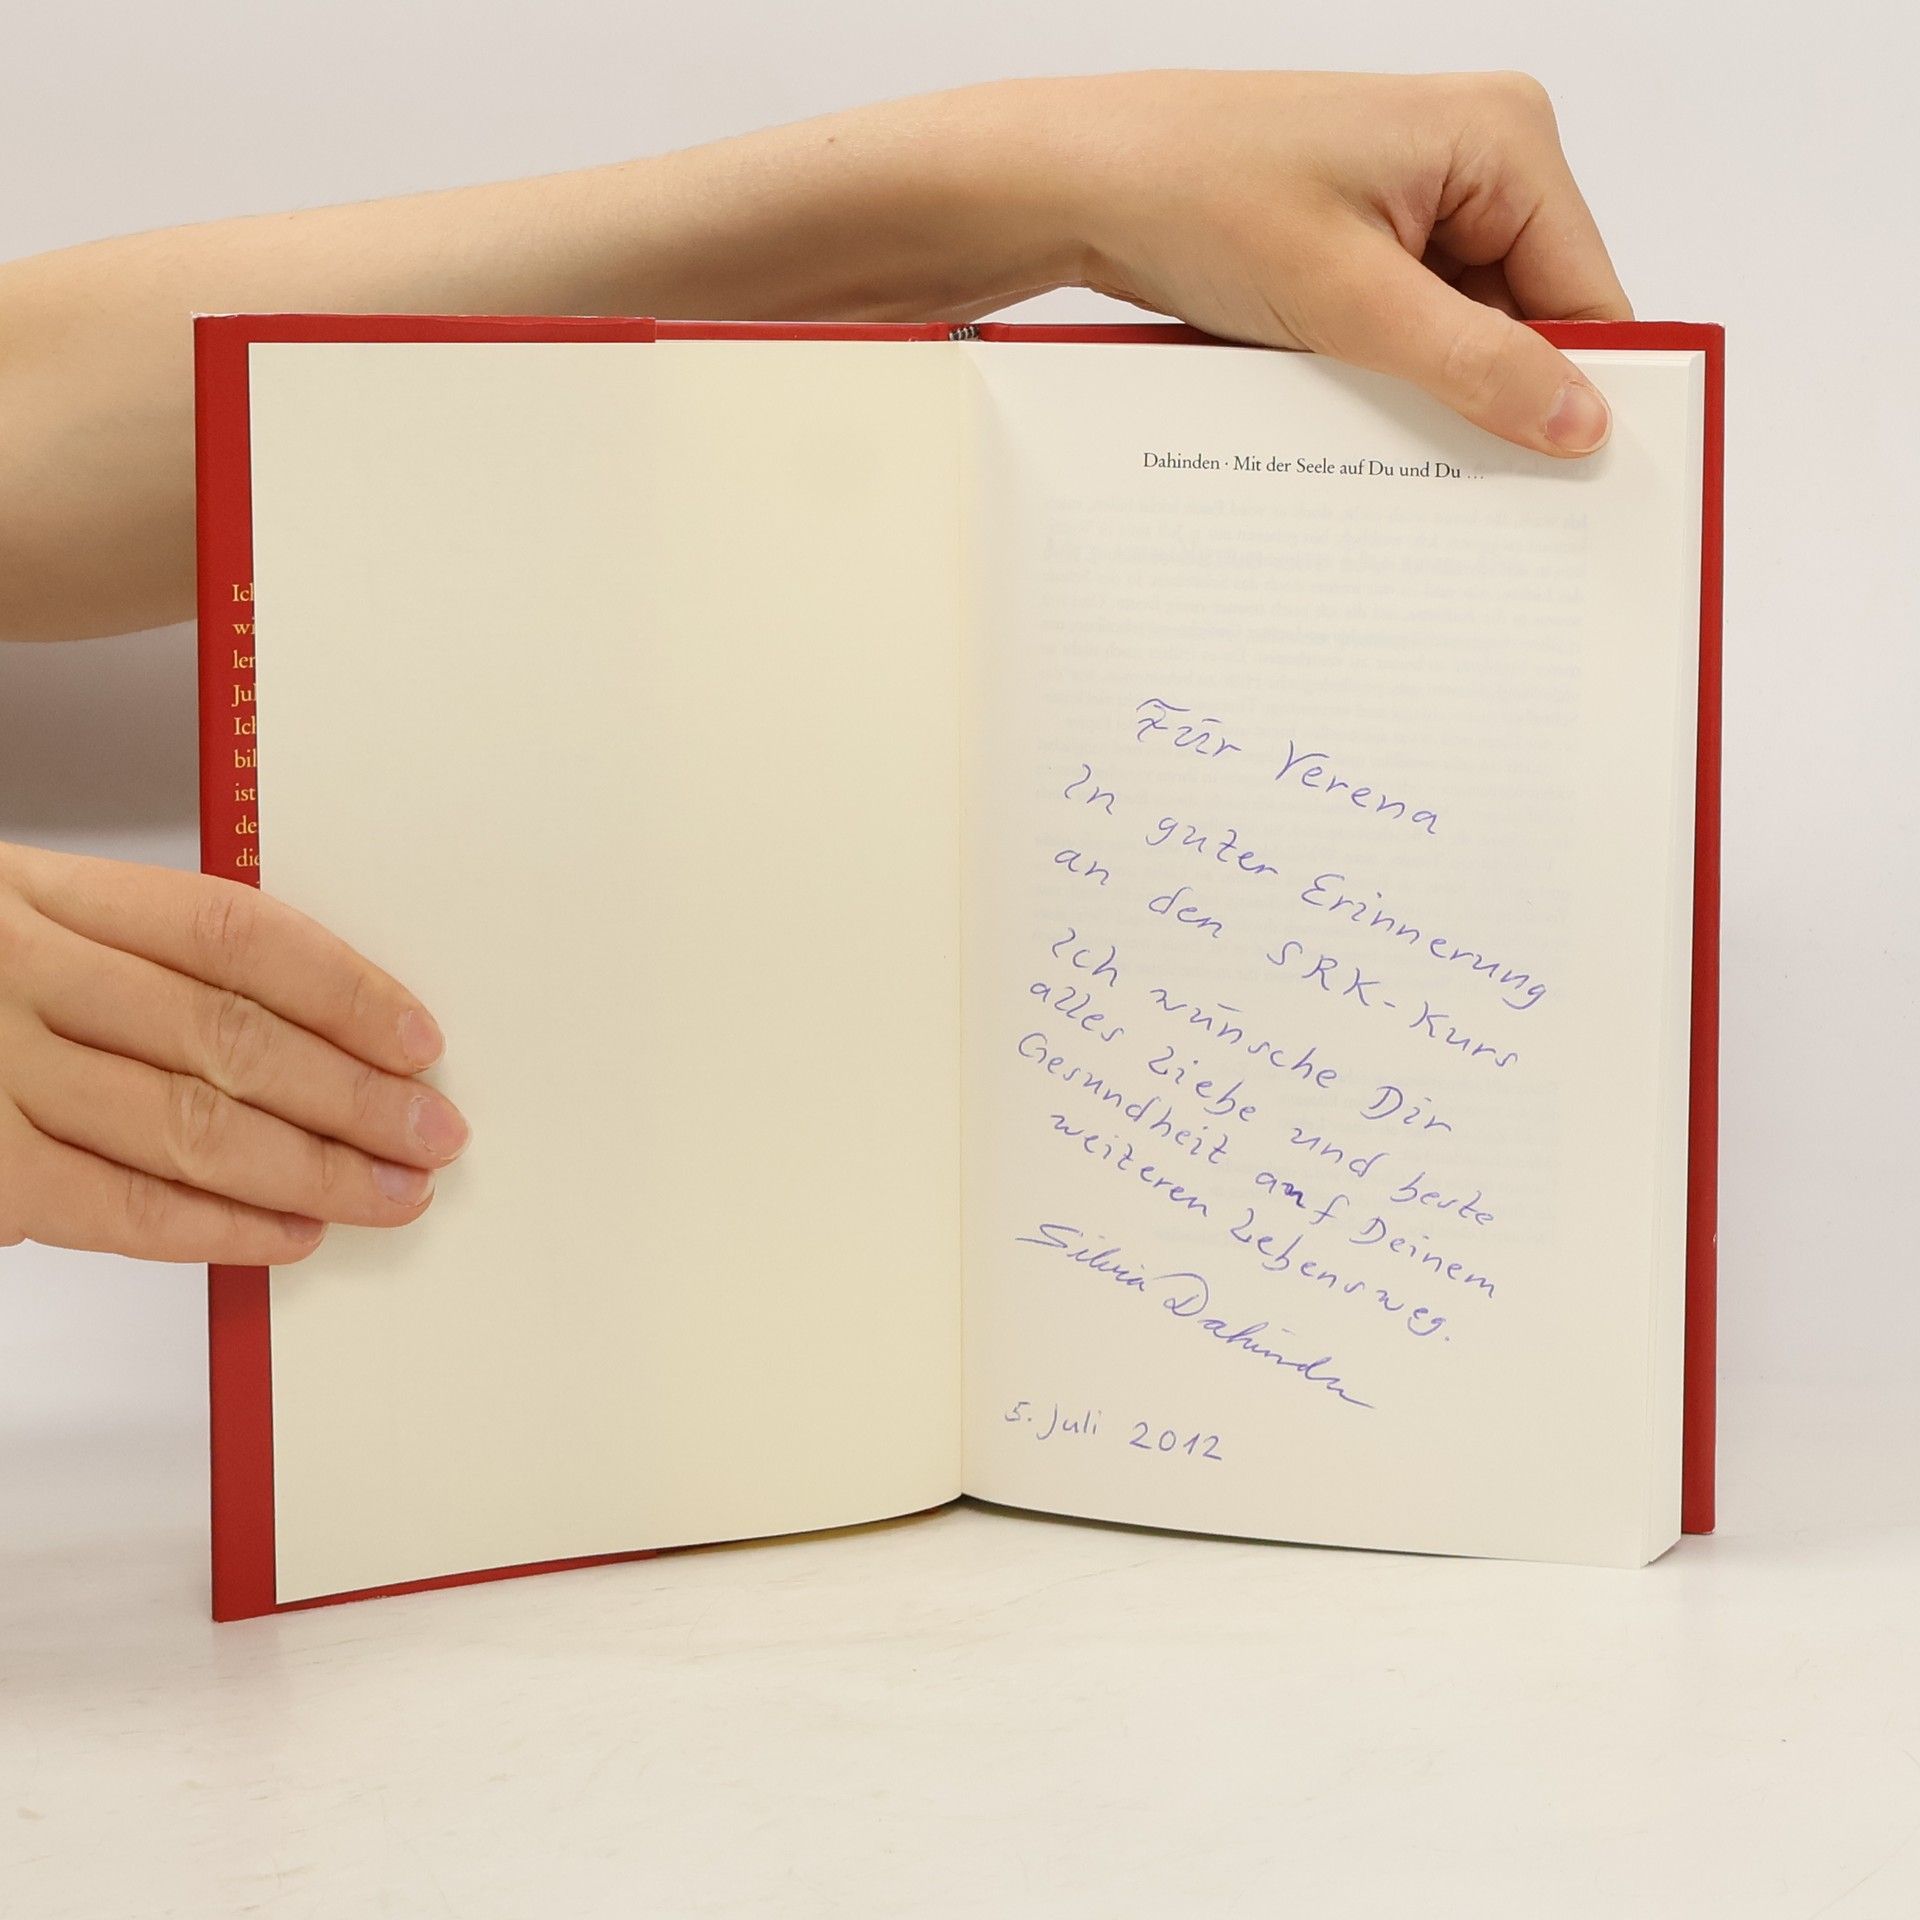 Ich
wi
ler
Jul
Ich
bil
ist
de
die
Dahinden · Mit der Seele auf Du und Du ...
Für Verena
In guter Erinnerung
an den SRK-Kurs
Ich wünsche Dir
alles Liebe und beste
Gesundheit auf Deinem
weiteren Lebensweg.
Silvia Dahinden
5. Juli 2012